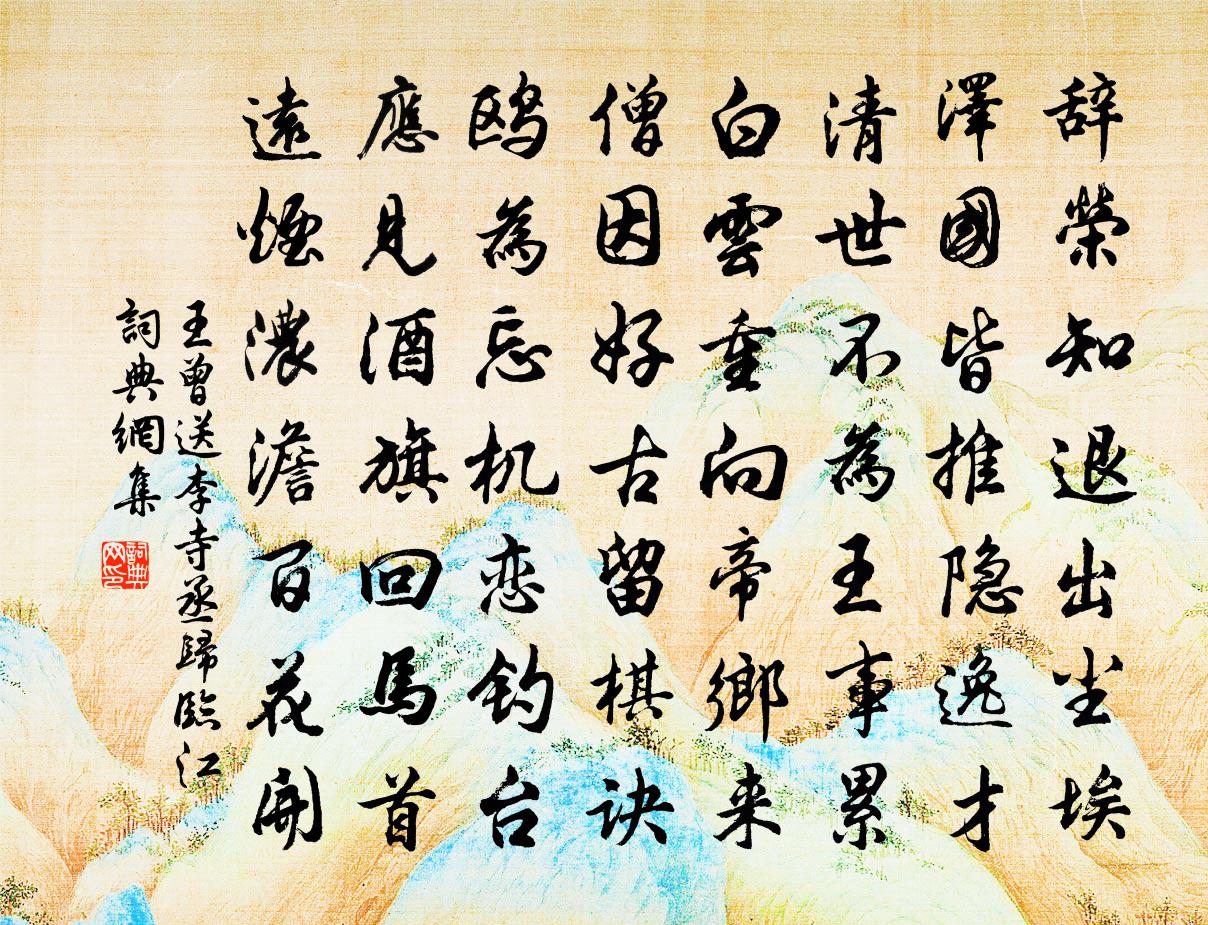 辞榮知退出尘埃
澤國皆推隐逸才
清世不為王事累
白雲重向帝鄉来
僧因好古留棋诀
鸥為忘机恋钓台
應見酒旗回馬首
遠煙濃澹百花開
王曾送李寺丞歸臨江
詞典網集
詞典网印